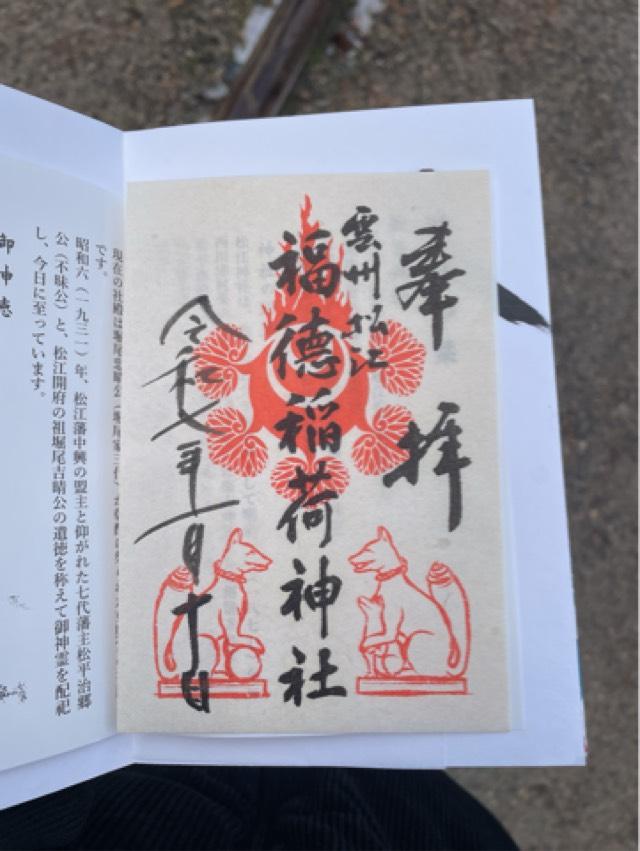 奉拝
雲州松江
福徳稲荷神社
令和七年一月十日
現在の社殿は堀尾忠晴公(堀尾家三代)
です。
昭和六(一九三一)年、松江藩中興の盟主と仰がれた七代藩主松平治郷
公(不昧公)と、松江開府の祖堀尾吉晴公の遺徳を称えて御神霊を配祀
し、今日に至っています。
御神徳